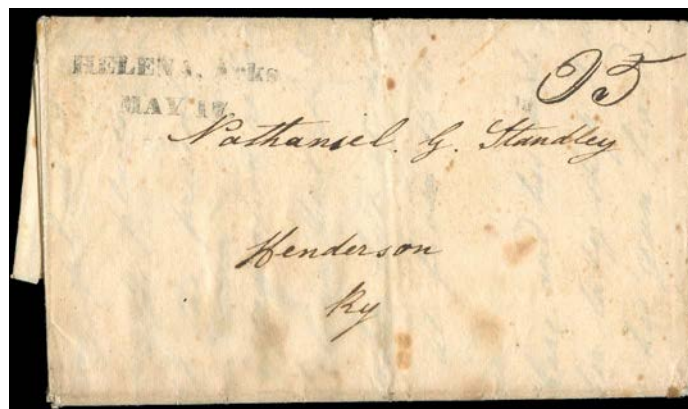 HELENA. Arks
MAY 17
25
Nathaniel. G. Standley
Henderson
Ky